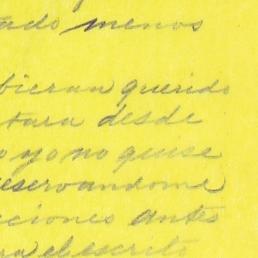 ado menos
bieran querido
tara desde
o yo no quise
eservandome
ciones antes
ra el escrito